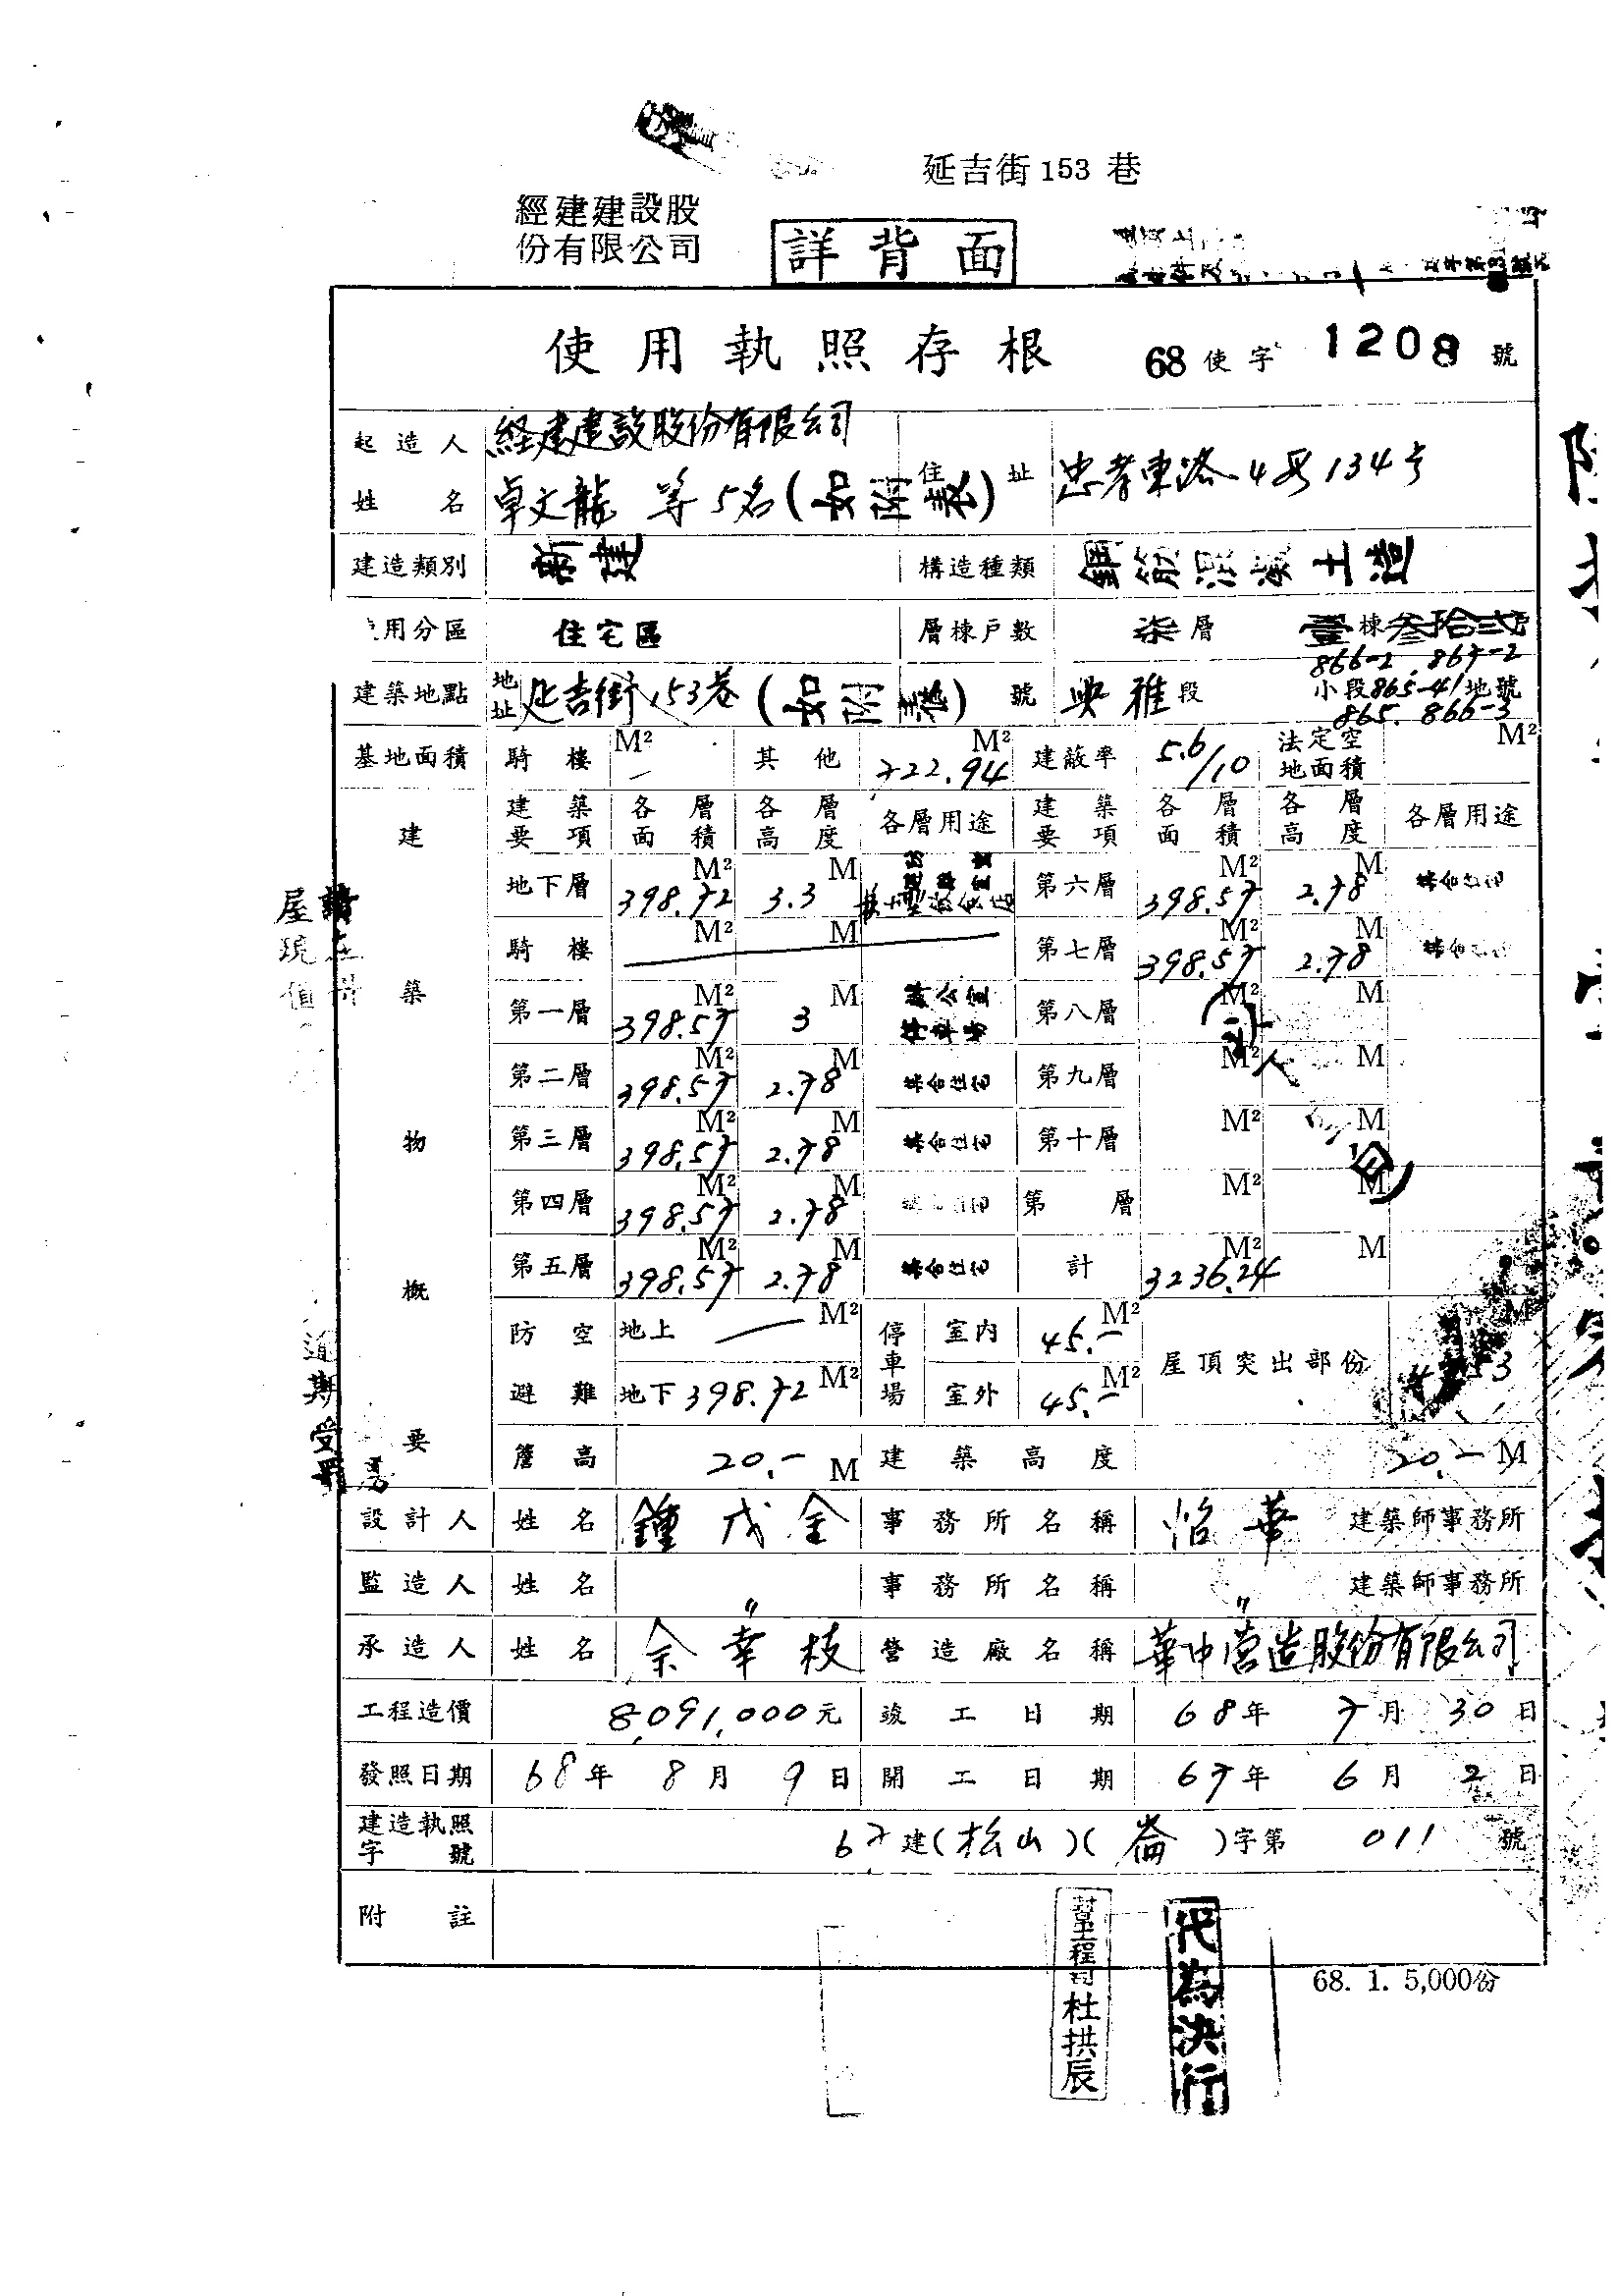 延吉街153巷
經建建設股
份有限公司
詳背面
使用執照存根 68使字 1208 號
起造人姓名 経建建設股份有限公司 卓文龍 等5名(如附表) 住址 忠孝東路4段134号
建造類別 新建 構造種類 鋼筋混凝土造
用分區 住宅區 層棟戶數 柒層 壹棟叁拾弍戶
建築地點 地址 延吉街153巷(如附表)號 興雅段 小段 866-2. 867-2 865-41 865. 866-3 地號
基地面積 騎樓 M² — 其他 722.94 M² 建蔽率 5.6/10 法定空地面積 M²
建築物概要
建築要項 各層面積 各層高度 各層用途 建築要項 各層面積 各層高度 各層用途
地下層 398.72 M² 3.3 M 第六層 398.57 M² 2.78 M 集合住宅
騎樓 M² M 第七層 398.57 M² 2.78 M 集合住宅
第一層 398.57 M² 3 M 辦公室 停車場 第八層 M² M
第二層 398.57 M² 2.78 M 集合住宅 第九層 M² M
第三層 398.57 M² 2.78 M 集合住宅 第十層 M² M
第四層 398.57 M² 2.78 M 第 層 M² M
第五層 398.57 M² 2.78 M 集合住宅 計 3236.24 M² M
防空避難 地上 — M² 停車場 室內 45.- M² 屋頂突出部份 M²
地下 398.72 M² 室外 45.- M²
簷高 20.- M 建築高度 20.- M
設計人 姓名 鍾茂金 事務所名稱 怡華 建築師事務所
監造人 姓名 〃 事務所名稱 〃 建築師事務所
承造人 姓名 余幸枝 營造廠名稱 華中营造股份有限公司
工程造價 8,091,000元 竣工日期 68年 7月 30日
發照日期 68年 8月 9日 開工日期 67年 6月 2日
建造執照字號 67建(松山)(崙)字第 011 號
附註
68. 1. 5,000份
杜拱辰
代為決行